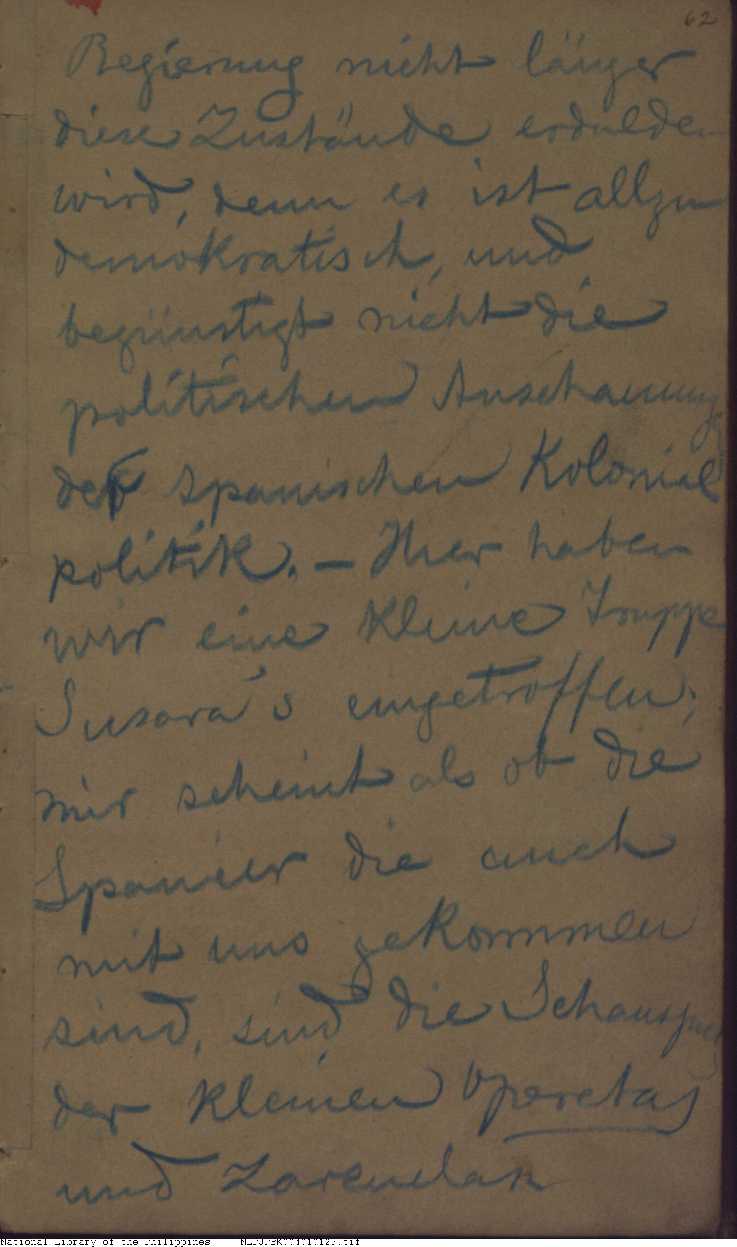 62
Regierung nicht länger
diese Zustände erdulden
wird, denn es ist allzu
demokratisch, und
begünstigt nicht die
politischen Anschauung
der spanischen Kolonial
politik. – Hier haben
wir eine kleine Truppe
Susara's eingetroffen;
mir scheint als ob die
Spanier die auch
mit uns gekommen
sind, sind die Schauspiel
der kleinen Operetas
und Zarzuelas
National Library of the Philippines